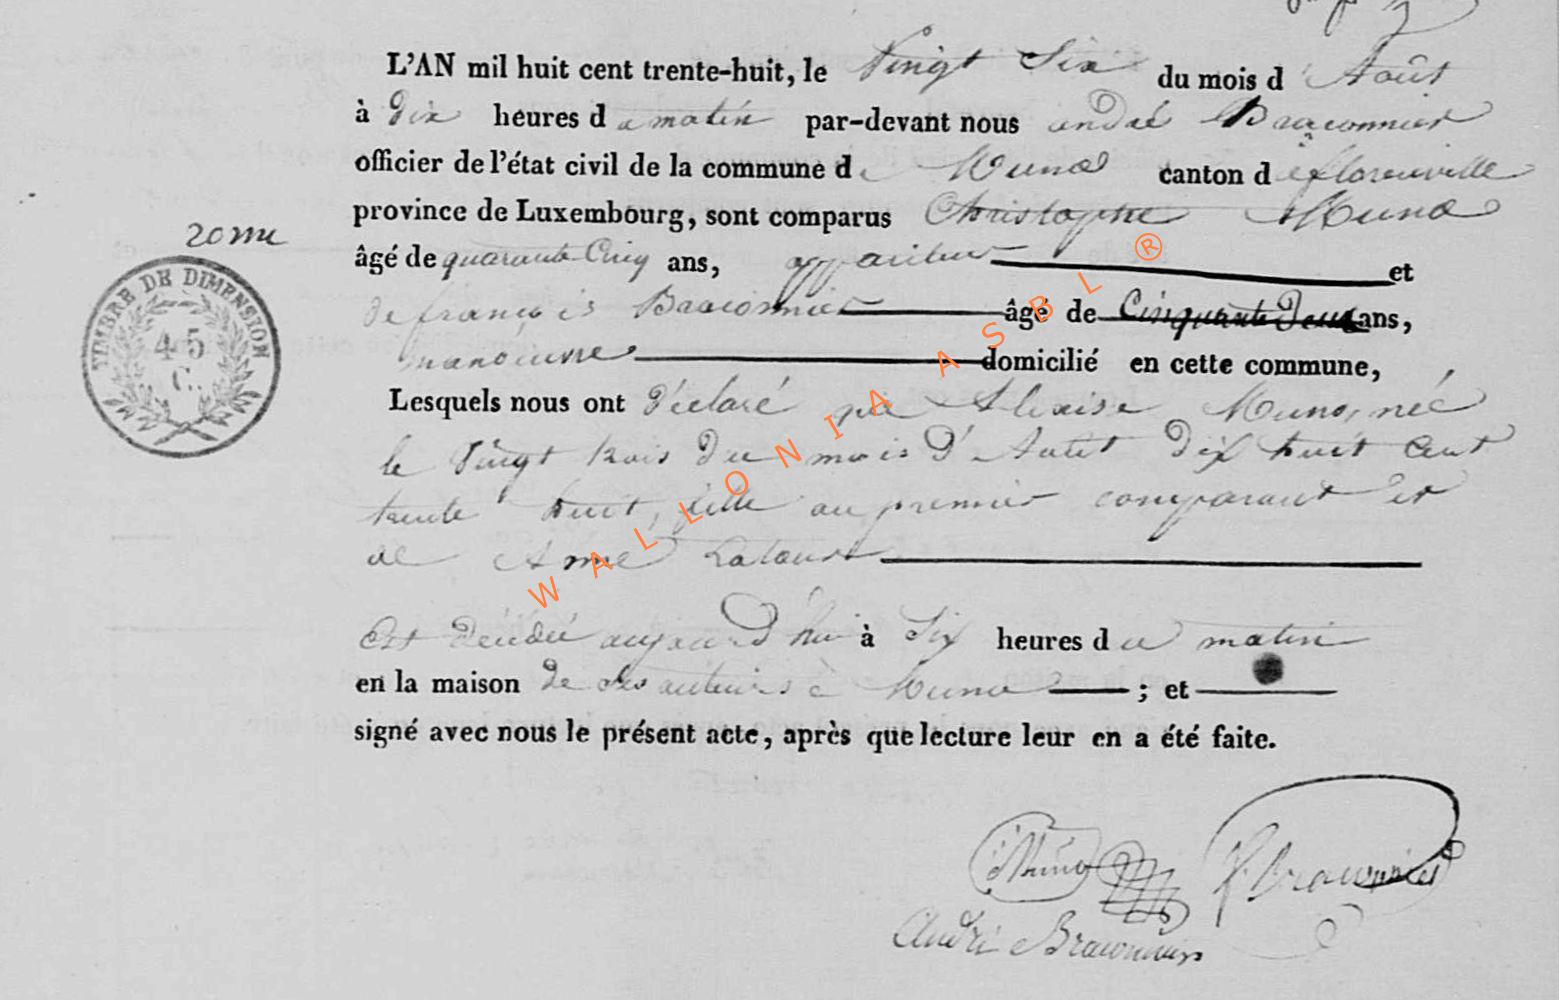 L'AN mil huit cent trente-huit, le Vingt Six du mois d'Août
à Dix heures d u matin par-devant nous andré Braconnier
officier de l'état civil de la commune d e Muno canton d e florenville
province de Luxembourg, sont comparus Christophe Muno
20me
âgé de quarante Cinq ans, appariteur et
de françois Braconnier âgé de Cinquante Deux ans,
manoeuvre domicilié en cette commune,
Lesquels nous ont Déclaré que Muno, née
le Vingt trois du mois D'Aout Dix huit Cent
trente huit, fille au premier comparant et
de Anne Latour
Est Décédée aujourd'hui à Six heures d u matin
en la maison de ses auteurs à Muno ; et
signé avec nous le présent acte, après que lecture leur en a été faite.
TIMBRE DE DIMENSION
45
C.
WALLONIA ASBL ®
Muno
F. Braconnier
André Braconnier